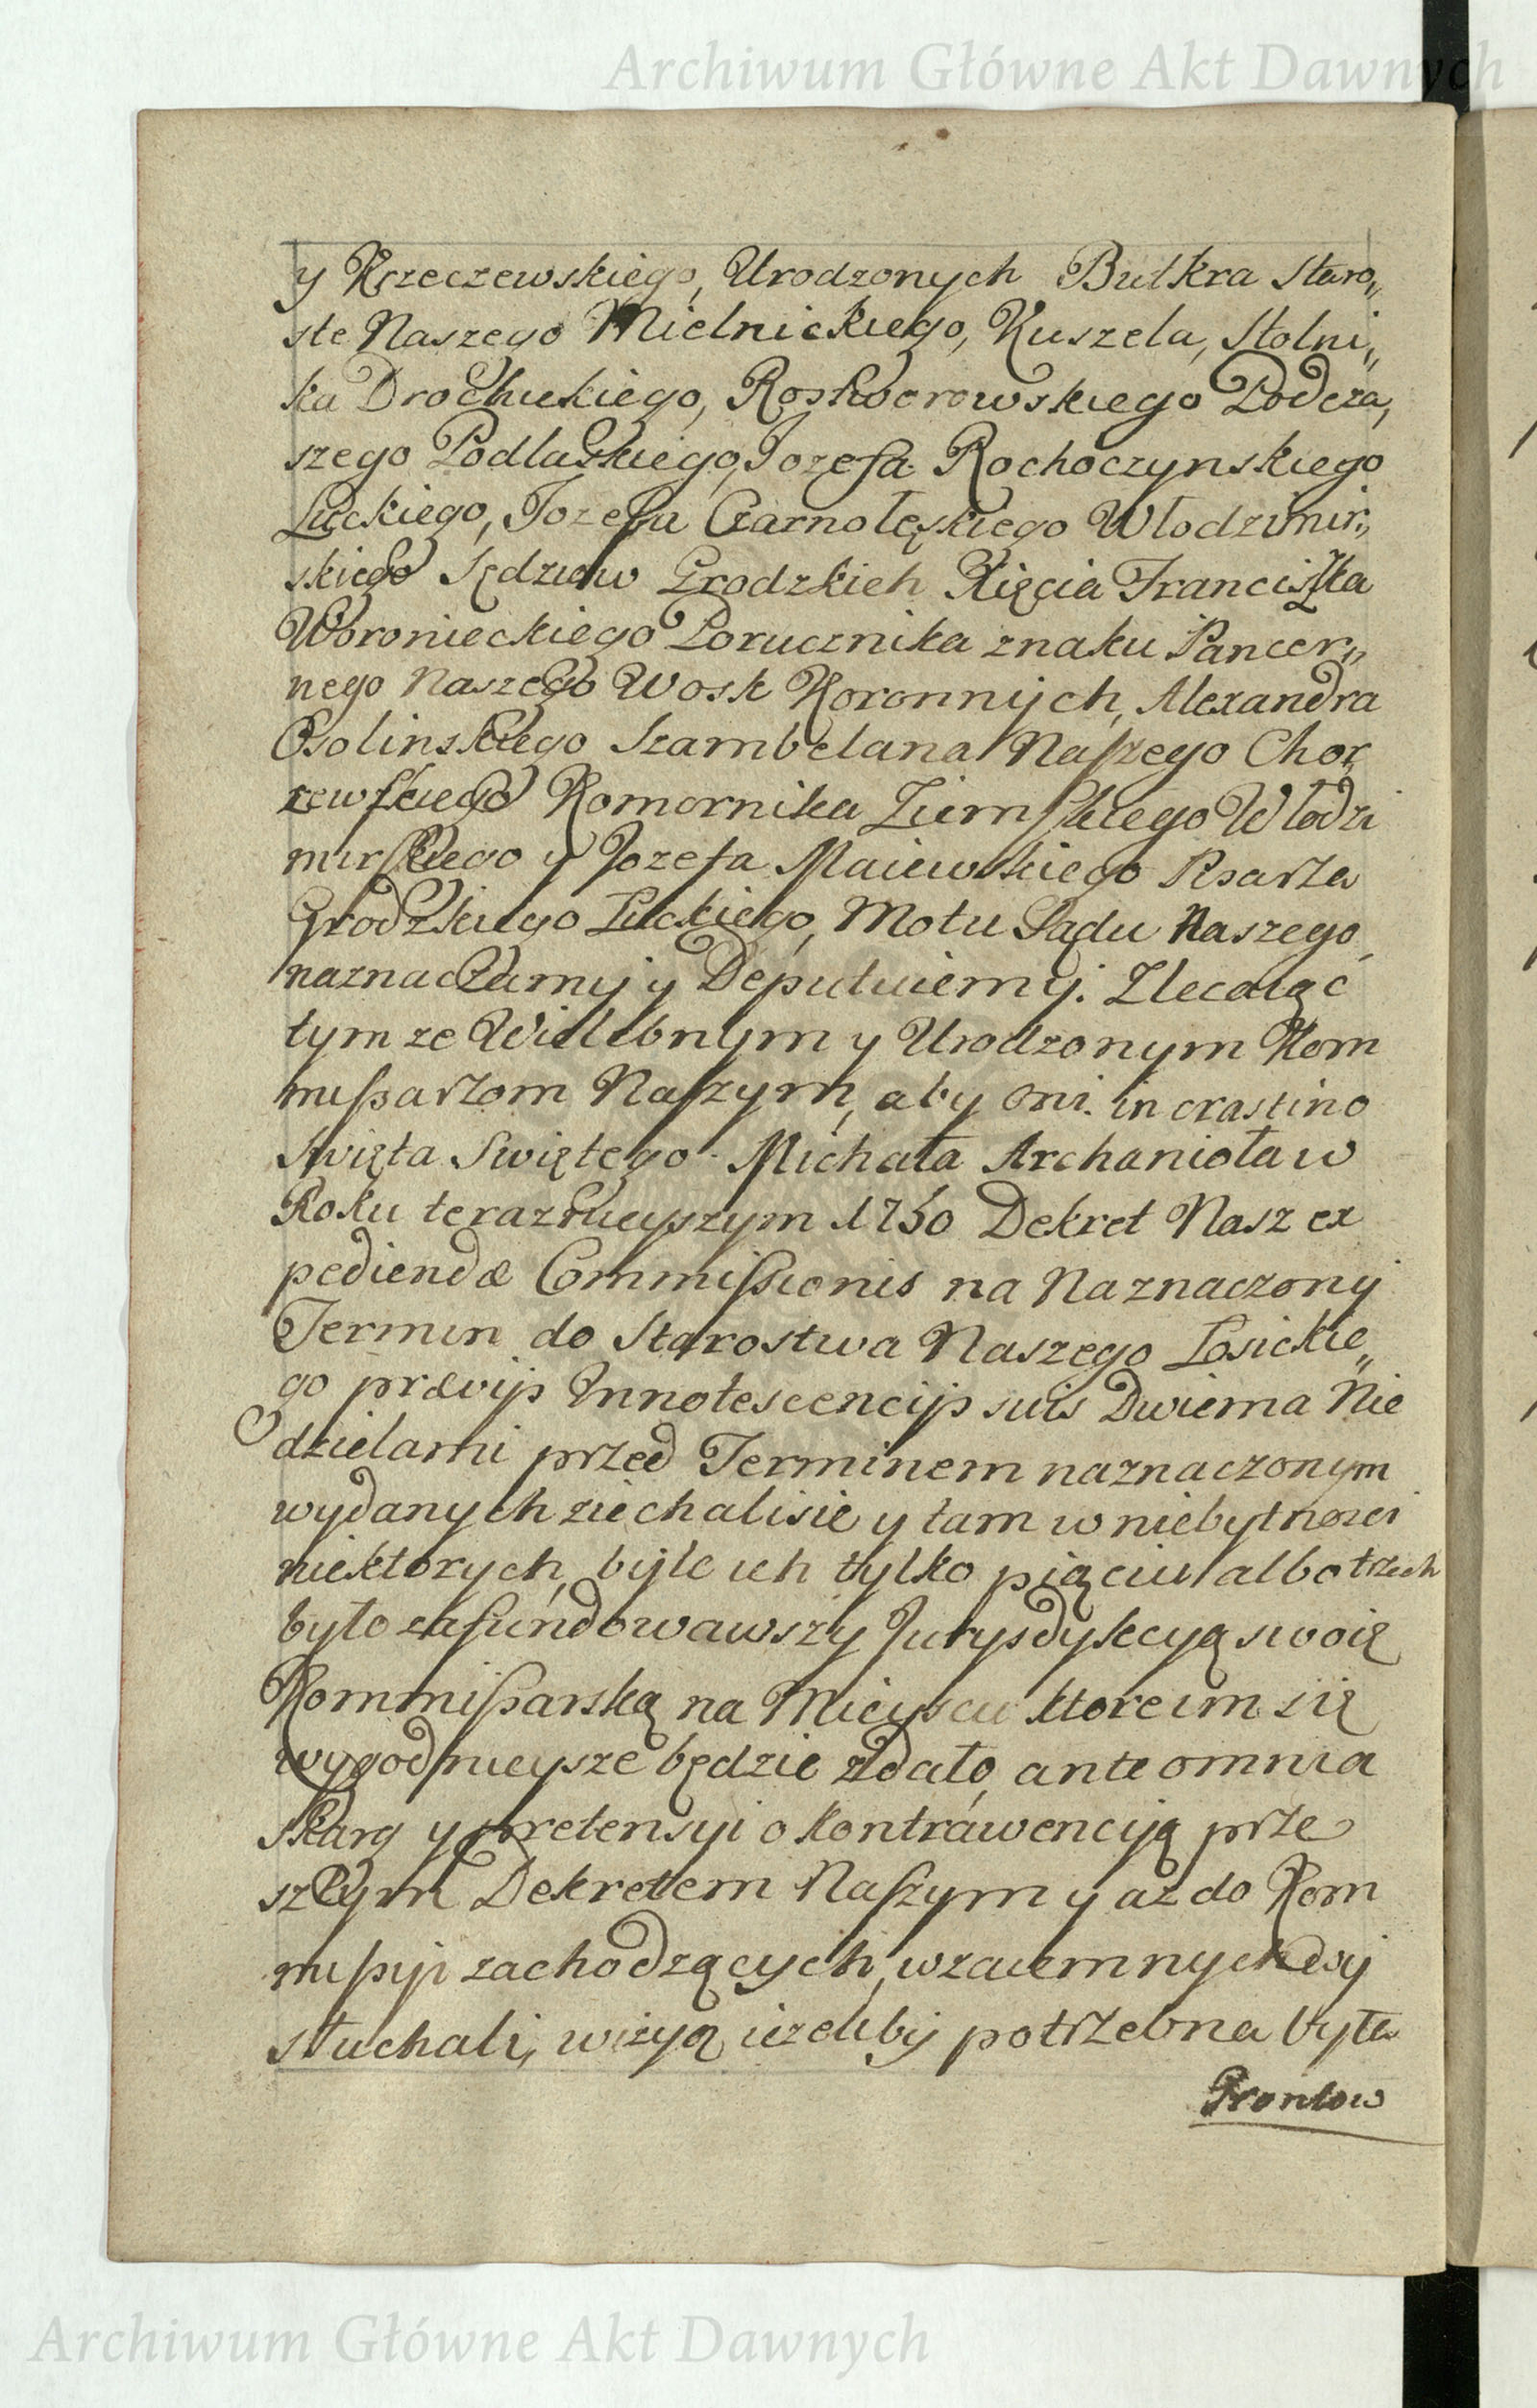 Archiwum Główne Akt Dawnych
y Krzeczewskiego, Urodzonych Butkra Staro„
ste Naszego Mielnickiego, Kuszela, Stolni„
ka Drochickiego, Roskworowskiego Podcza„
szego Podlaskiego, Jozefa Rochoczynskiego
Łuckiego, Jozefa Czarnołęskiego Włodzimir„
skiego Sędziow Grodzkich Xięcia Franciszka
Woronieckiego Porucznika znaku Pancer„
nego Naszego Wosk Koronnych, Alexandra
Osolinskiego Szambelana Naszego Chor
zewskiego Komornika Ziemskiego Włodzi
mirskiego y Jozefa Maiewskiego Pisarza
Grodzkiego Łuckiego, Motu Sądu Naszego
naznaczamy y Deputuiemy. Zlecaiąc
tym ze Wielebnym y Urodzonym Kom
missarzom Naszym, aby oni in crastino
Swięta Swiętego Michała Archanioła w
Roku teraznieyszym 1750 Dekret Nasz ex
pediendæ Commissionis na Naznaczony
Termin do Starostwa Naszego Łosickie„
go prævijs Innotescencijs suis Dwiema Nie
dzielami przed Terminem naznaczonym
wydanych ziechali sie y tam w niebytnosci
niektorych, byle ich tylko pięciu albo trzech
było zafundowawszy Jurysdykcyą swoię
Kommissarską na Mieyscu ktore im się
wygodnieysze będzie zdało, ante omnia
skarg y pretensyi o kontrawencyą prze
szłym Dekretem Naszym y az do Kom
missyi zachodzących, wzaiemnych
słuchali, wizyą iezeliby potrzebna była
Grontow
Archiwum Główne Akt Dawnych